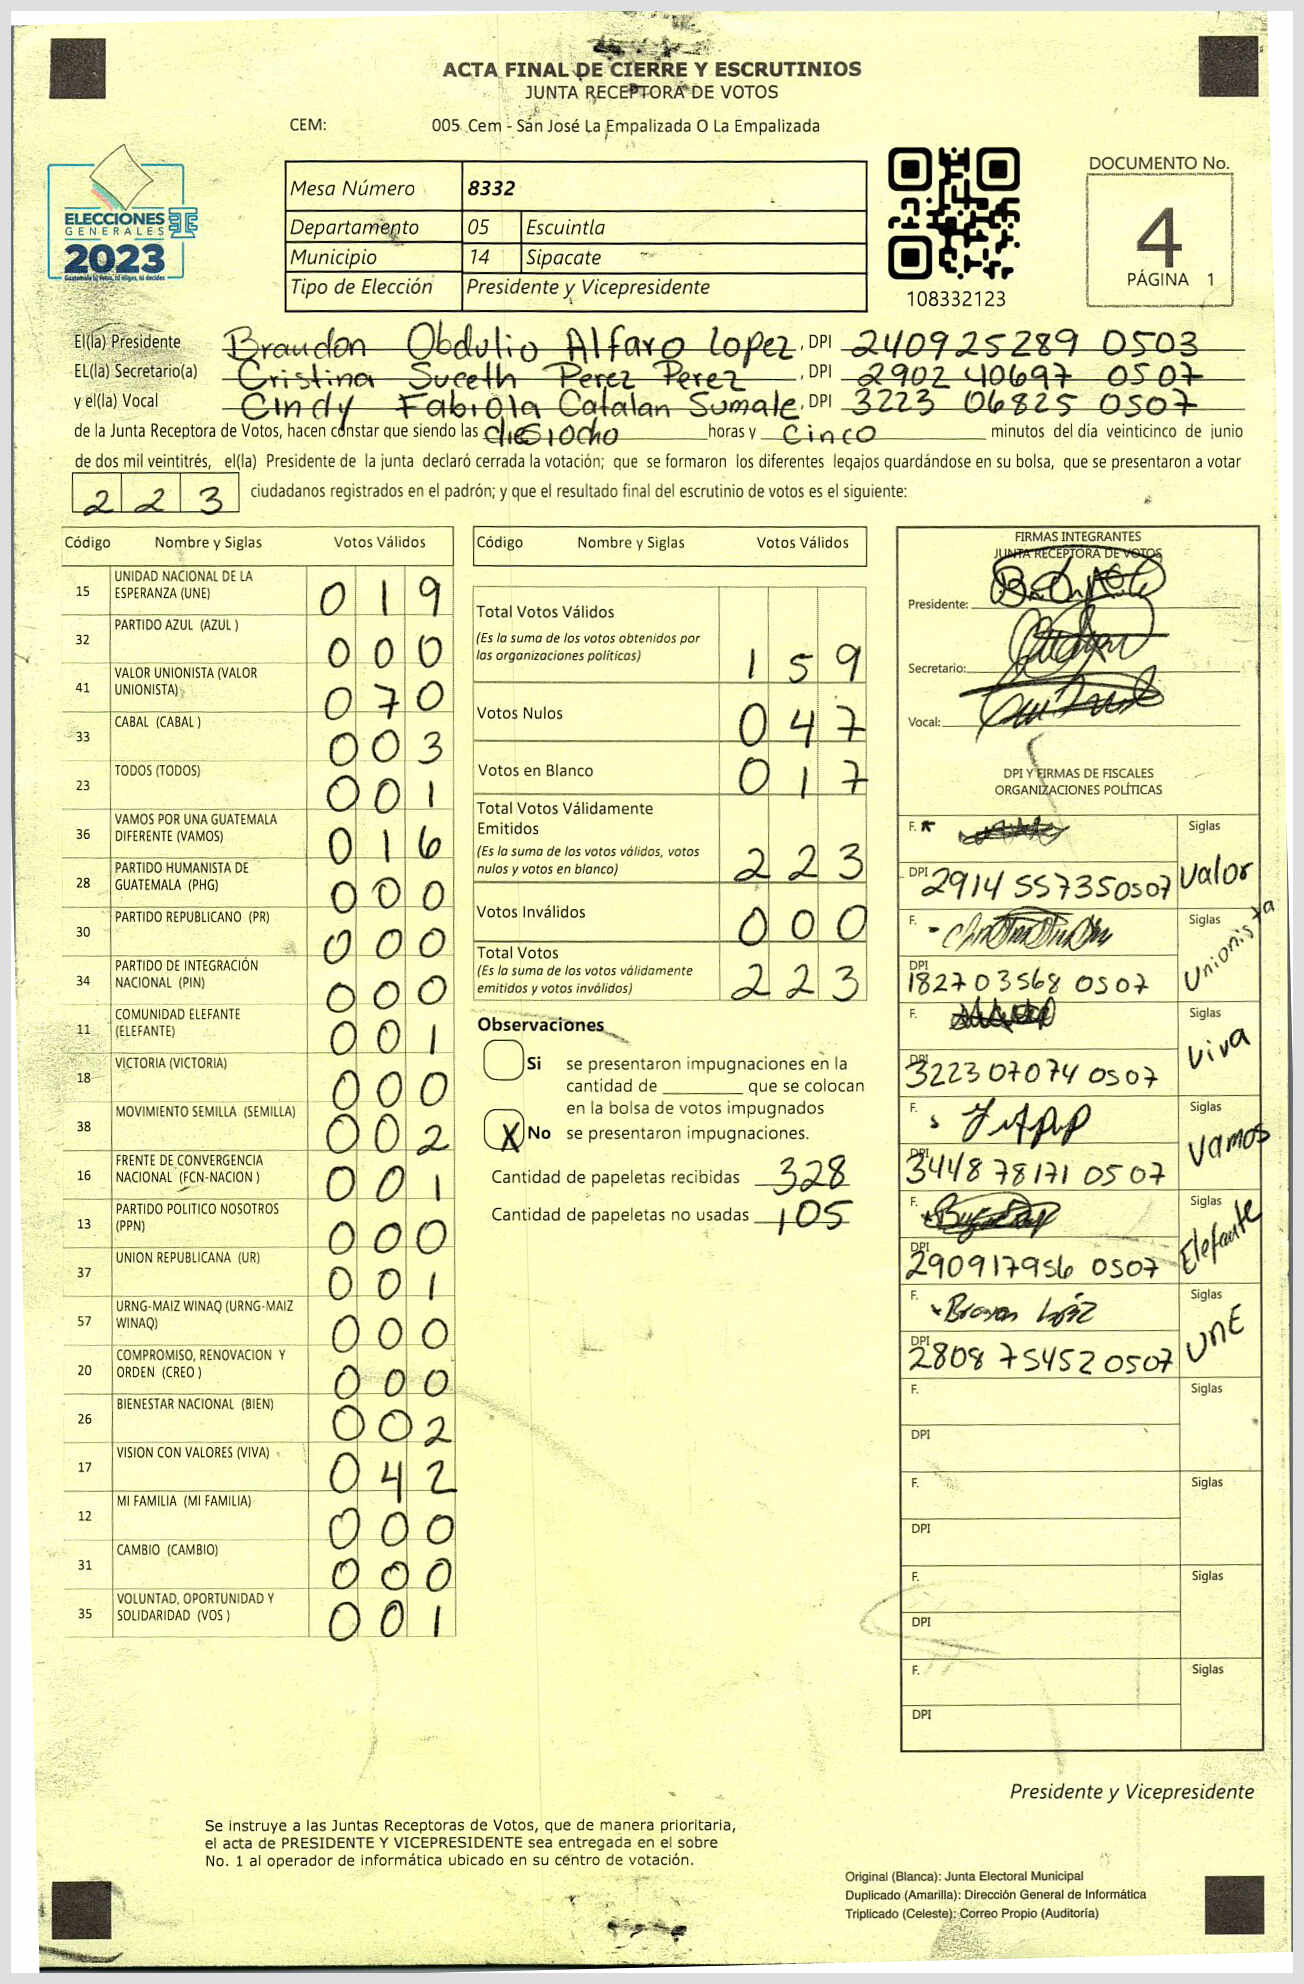 ACTA FINAL DE CIERRE Y ESCRUTINIOS
JUNTA RECEPTORA DE VOTOS
CEM: 005 Cem - San José La Empalizada O La Empalizada
ELECCIONES
GENERALES
2023
Mesa Número 8332
Departamento 05 Escuintla
Municipio 14 Sipacate
Tipo de Elección Presidente y Vicepresidente
108332123
DOCUMENTO No.
4
PÁGINA 1
El(la) Presidente Brandon Obdulio Alfaro Lopez, DPI 240925289 0503
EL(la) Secretario(a) Cristina Suceth Perez Perez, DPI 2902 40697 0507
y el(la) Vocal Cindy Fabiola Catalan Sumale, DPI 3223 06825 0507
de la Junta Receptora de Votos, hacen constar que siendo las diesiocho horas y cinco minutos del día veinticinco de junio
de dos mil veintitrés, el(la) Presidente de la junta declaró cerrada la votación; que se formaron los diferentes legajos guardándose en su bolsa, que se presentaron a votar
223 ciudadanos registrados en el padrón; y que el resultado final del escrutinio de votos es el siguiente:
Código Nombre y Siglas Votos Válidos
15 UNIDAD NACIONAL DE LA ESPERANZA (UNE) 019
32 PARTIDO AZUL (AZUL ) 000
41 VALOR UNIONISTA (VALOR UNIONISTA) 070
33 CABAL (CABAL ) 003
23 TODOS (TODOS) 001
36 VAMOS POR UNA GUATEMALA DIFERENTE (VAMOS) 016
28 PARTIDO HUMANISTA DE GUATEMALA (PHG) 000
30 PARTIDO REPUBLICANO (PR) 000
34 PARTIDO DE INTEGRACIÓN NACIONAL (PIN) 000
11 COMUNIDAD ELEFANTE (ELEFANTE) 001
18 VICTORIA (VICTORIA) 000
38 MOVIMIENTO SEMILLA (SEMILLA) 002
16 FRENTE DE CONVERGENCIA NACIONAL (FCN-NACION ) 001
13 PARTIDO POLITICO NOSOTROS (PPN) 000
37 UNION REPUBLICANA (UR) 001
57 URNG-MAIZ WINAQ (URNG-MAIZ WINAQ) 000
20 COMPROMISO, RENOVACION Y ORDEN (CREO ) 000
26 BIENESTAR NACIONAL (BIEN) 002
17 VISION CON VALORES (VIVA) 042
12 MI FAMILIA (MI FAMILIA) 000
31 CAMBIO (CAMBIO) 000
35 VOLUNTAD, OPORTUNIDAD Y SOLIDARIDAD (VOS ) 001
Código Nombre y Siglas Votos Válidos
Total Votos Válidos 159
(Es la suma de los votos obtenidos por
las organizaciones políticas)
Votos Nulos 047
Votos en Blanco 017
Total Votos Válidamente
Emitidos 223
(Es la suma de los votos válidos, votos
nulos y votos en blanco)
Votos Inválidos 000
Total Votos 223
(Es la suma de los votos válidamente
emitidos y votos inválidos)
Observaciones
Si se presentaron impugnaciones en la
cantidad de ________ que se colocan
en la bolsa de votos impugnados
X No se presentaron impugnaciones.
Cantidad de papeletas recibidas 328
Cantidad de papeletas no usadas 105
FIRMAS INTEGRANTES
JUNTA RECEPTORA DE VOTOS
Presidente:
Secretario:
Vocal:
DPI Y FIRMAS DE FISCALES
ORGANIZACIONES POLÍTICAS
F. Siglas Valor
DPI 2914 55735 0507
F. Siglas Unionista
DPI 182703568 0507
F. Siglas Viva
DPI 322307074 0507
F. Siglas Vamos
DPI 3448 78171 0507
F. Siglas Elefante
DPI 290917956 0507
F. Siglas UNE
DPI 2808 75452 0507
F. Siglas
DPI
F. Siglas
DPI
F. Siglas
DPI
F. Siglas
DPI
Presidente y Vicepresidente
Se instruye a las Juntas Receptoras de Votos, que de manera prioritaria,
el acta de PRESIDENTE Y VICEPRESIDENTE sea entregada en el sobre
No. 1 al operador de informática ubicado en su centro de votación.
Original (Blanca): Junta Electoral Municipal
Duplicado (Amarilla): Dirección General de Informática
Triplicado (Celeste): Correo Propio (Auditoría)